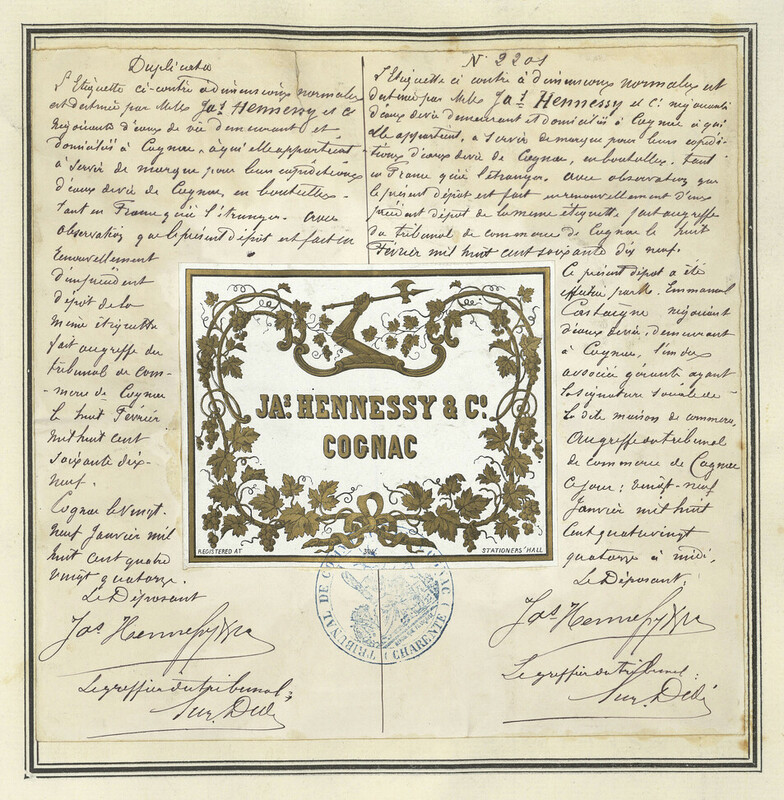 Duplicata
L'Etiquette ci-contre à dimensions normales
est destinée par MMrs Jas Hennessy et Co
Négociants d'eaux de vie demeurant et
domiciliés à Cognac, à qui elle appartient
à servir de marque pour leurs expéditions
d'eaux de vie de Cognac, en bouteilles.
tant en France qu'à l'étranger. avec
observation que le présent dépôt est fait en
renouvellement
d'un précédent
dépôt de la
même étiquette
fait au greffe du
tribunal de com-
merce de Cognac
le huit Février
mil huit cent
soixante dix-
neuf.
Cognac le vingt-
neuf Janvier mil
huit cent quatre
vingt quatorze.
Le Déposant
Jas Hennessy & Co
Le greffier du tribunal;
No 2201
L'Etiquette ci contre à dimensions normales est
destinée par MMrs Jas Hennessy et Co négociants
d'eaux de vie demeurant et domiciliés à Cognac à qui
elle appartient, à servir de marque pour leurs expédi-
tions d'eaux de vie de Cognac, en bouteilles. tant
en France qu'à l'étranger. avec observation que
le présent dépôt est fait en renouvellement d'un
précédent dépôt de la même étiquette, fait au greffe
du tribunal de commerce de Cognac le huit
Février mil huit cent soixante dix neuf.
Ce présent dépôt a été
effectué par M. Emmanuel
Castaigne négociant
d'eaux de vie, demeurant
à Cognac, l'un des
associés gérants ayant
la signature sociale de
la dite maison de commerce,
au greffe du tribunal
de commerce de Cognac
ce jour: vingt-neuf
Janvier mil huit
cent quatre vingt
quatorze à midi.
Le Déposant:
Jas Hennessy & Co
Le greffier du tribunal:
JAS HENNESSY & Co
COGNAC
REGISTERED AT
STATIONERS' HALL
TRIBUNAL DE COMMERCE COGNAC (CHARENTE)